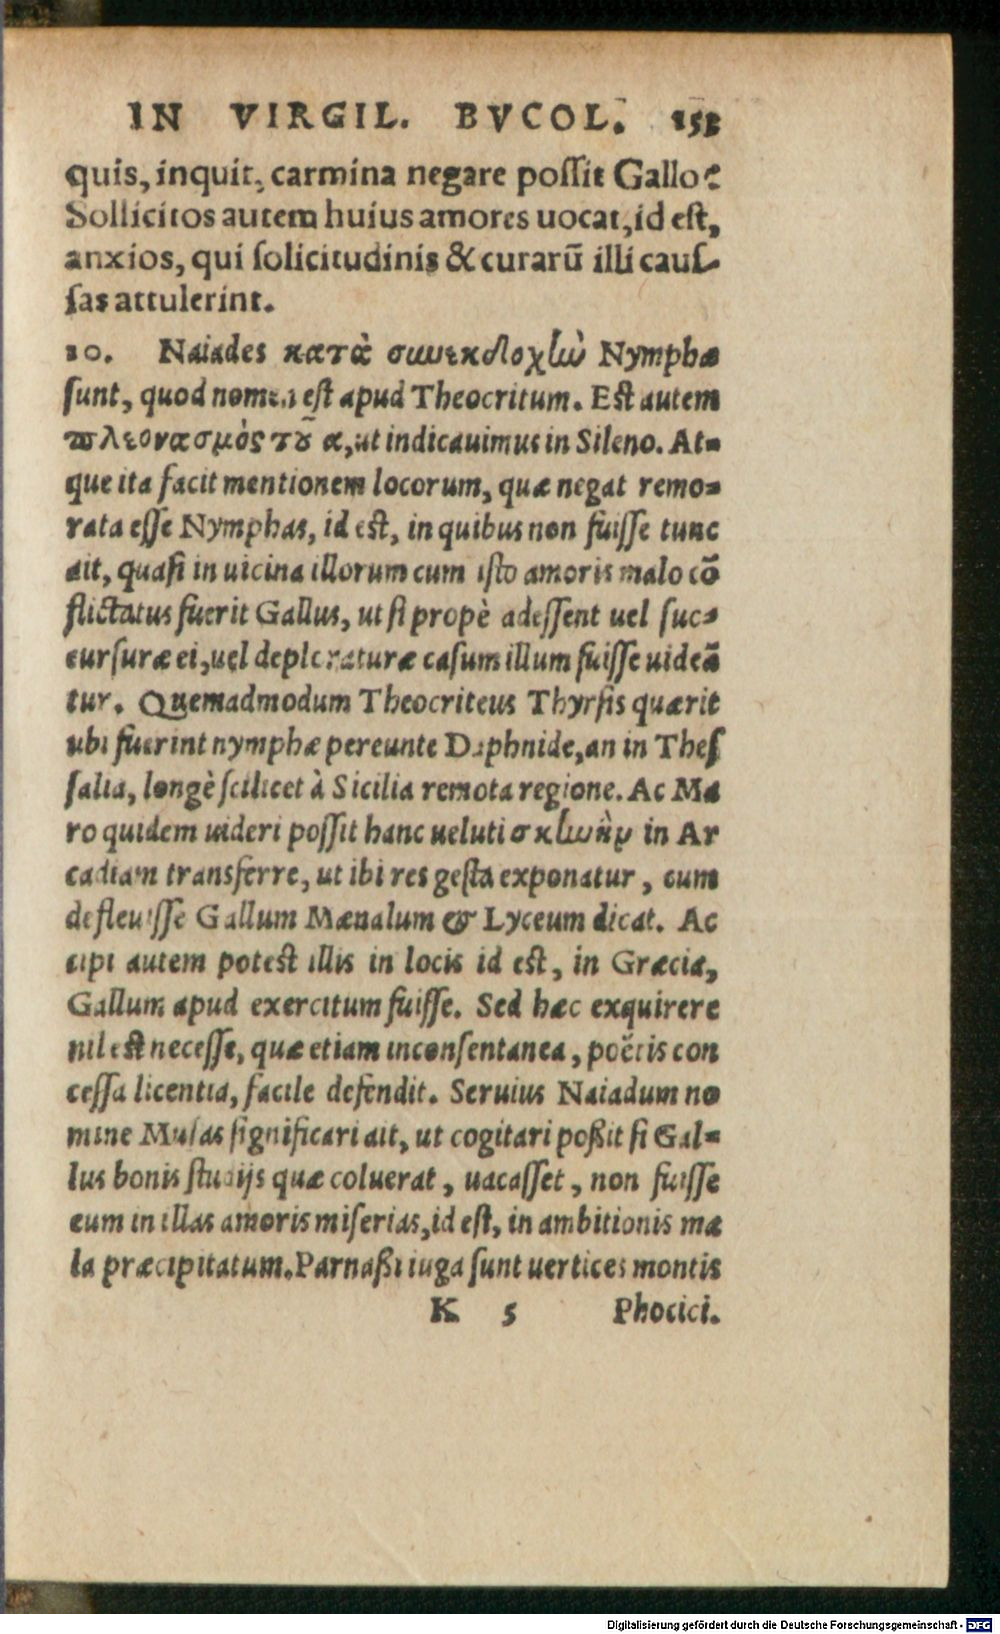 IN VIRGIL. BVCOL. 153
quis, inquit, carmina negare poſſit Gallo?
Sollicitos autem huius amores uocat, id eſt,
anxios, qui ſolicitudinis & curarū illi cauſ-
ſas attulerint.
10. Naiades κατὰ συνεκδοχὴν Nymphæ
ſunt, quod nomen eſt apud Theocritum. Eſt autem
πλεονασμὸς τοῦ α, ut indicauimus in Sileno. At-
que ita facit mentionem locorum, quæ negat remo-
rata eſſe Nymphas, id eſt, in quibus non fuiſſe tunc
ait, quaſi in uicina illorum cum iſto amoris malo cō
flictatus fuerit Gallus, ut ſi propè adeſſent uel ſuc-
curſuræ ei, uel deploraturæ caſum illum fuiſſe uideā
tur. Quemadmodum Theocriteus Thyrſis quærit
ubi fuerint nymphæ pereunte Daphnide, an in Theſ
ſalia, longè ſcilicet à Sicilia remota regione. Ac Ma
ro quidem uideri poſſit hanc ueluti σκηνὴν in Ar
cadiam transferre, ut ibi res geſta exponatur, cum
defleuiſſe Gallum Mænalum & Lyceum dicat. Ac
cipi autem poteſt illis in locis id eſt, in Græcia,
Gallum apud exercitum fuiſſe. Sed hæc exquirere
nil eſt neceſſe, quæ etiam inconſentanea, poëtis con
ceſſa licentia, facile defendit. Seruius Naiadum no
mine Muſas ſignificari ait, ut cogitari poßit ſi Gal-
lus bonis ſtudijs quæ coluerat, uacaſſet, non fuiſſe
eum in illas amoris miſerias, id eſt, in ambitionis ma
la præcipitatum. Parnaßi iuga ſunt uertices montis
K 5 Phocici.
Digitalisierung gefördert durch die Deutsche Forschungsgemeinschaft - DFG